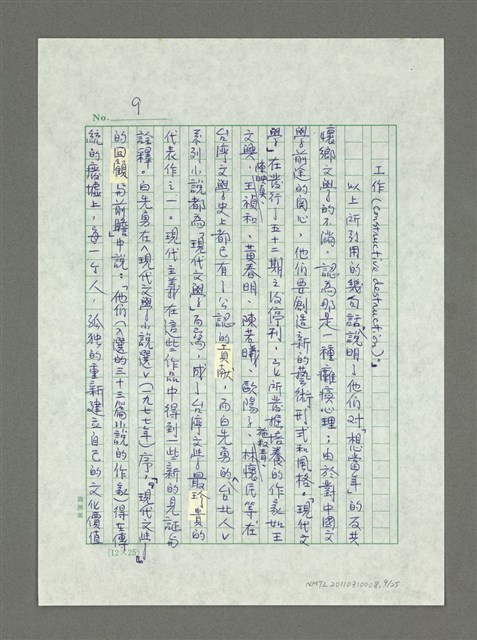 No. 9
工作（constructive destruction）。』
以上所引用的幾句話說明了他們對「想當年」的反共
懷鄉文學的不滿，認為那是一種癱瘓心理；由於對中國文
學前途的関心，他們要創造新的藝術形式和風格。「現代文
學」在發行了五十二期之後停刊，它所發掘培養的作家如王
文興、陳映真、王禎和、黃春明、陳若曦、歐陽子、施叔青、林懷民等，在
台灣文學史上都已有了公認的貢献，而白先勇的〈台北人〉
系列小說都為「現代文學」而寫，成了台灣文學最珍貴的
代表作之一。現代主義在這些作品中得到一些新的見証与
詮釋。白先勇在〈現代文學小說選〉（一九七七年）序：『「現代文學」
的回顧与前瞻』中說：「他們（入選的三十三篇小說的作家）得在傳
統的廢墟上，每一个人，孤独的重新建立自己的文化價值
(12×25)
NMTL20110310008, 9/25